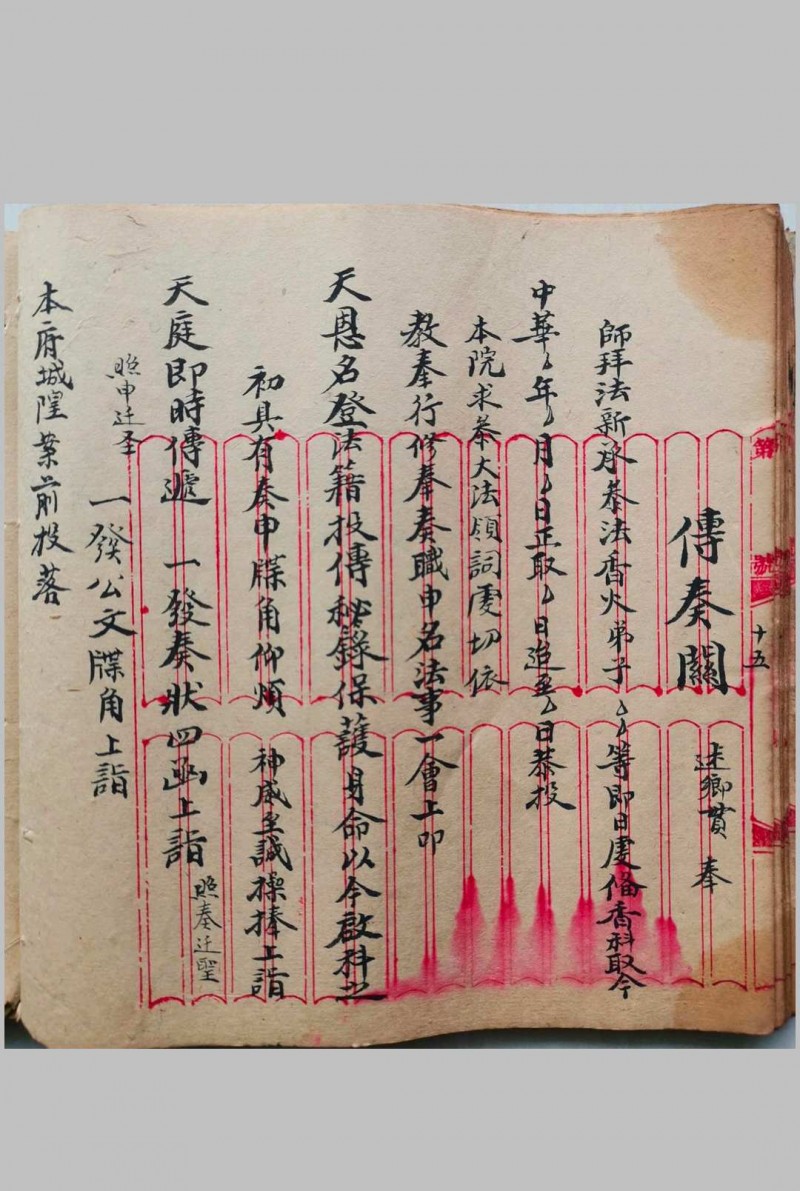 第
號
十五
傳奏關 述鄉貫 奉
師拜法新承叅法香火弟子〻等即日虔俻香科取今
中華〻年〻月〻日正取〻日迨至〻日恭投
本院求叅大法領詞虔切依
教奉行修奉奏職申名法事一會上叩
天恩名登法籍投傳秘錄保護身命以今啟科之
初具有奏申牒角仰煩 神威至誠操捧上詣
天庭即時傳遞 一發奏狀四函上詣 照奏迁聖
照申迁圣 一發公文牒角上詣
本府城隍案前投落